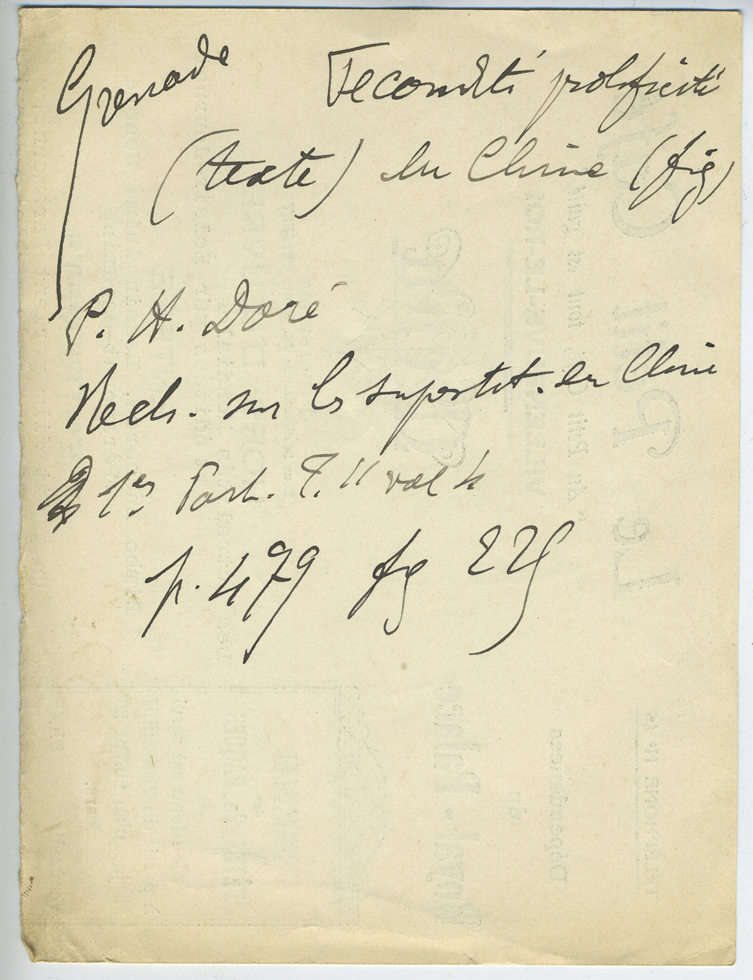 Grenade Fecondité prolificité
(texte) en Chine (fig)
P. H. Doré
Rech. sur les superstit. en Chine
1er Part. T. II vol 4
p. 479 fig 225